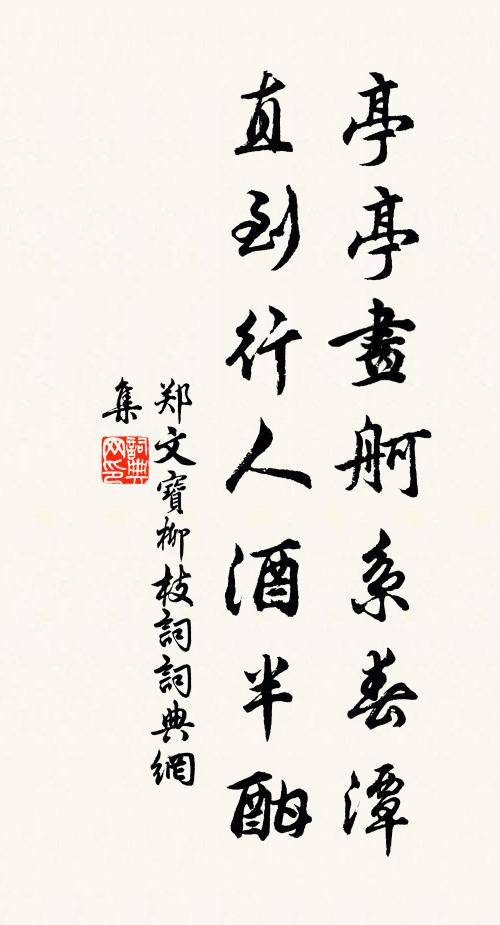 亭亭畫舸系春潭
直到行人酒半酣
郑文寶柳枝詞詞典網
集
詞典
网印